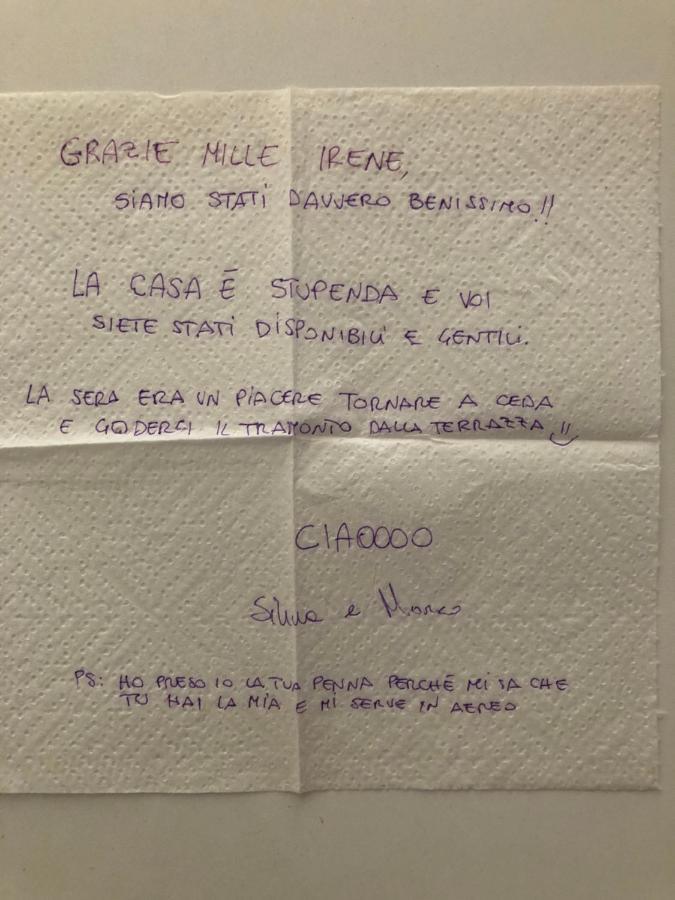 GRAZIE MILLE IRENE,
SIAMO STATI D'AVVERO BENISSIMO!!
LA CASA È STUPENDA E VOI
SIETE STATI DISPONIBILI E GENTILI.
LA SERA ERA UN PIACERE TORNARE A CEDA
E GODERCI IL TRAMONTO DALLA TERRAZZA!!
CIAOOOO
Silvia e Marco
PS: HO PRESO IO LA TUA PENNA PERCHÉ MI SA CHE
TU HAI LA MIA E MI SERVE IN AEREO